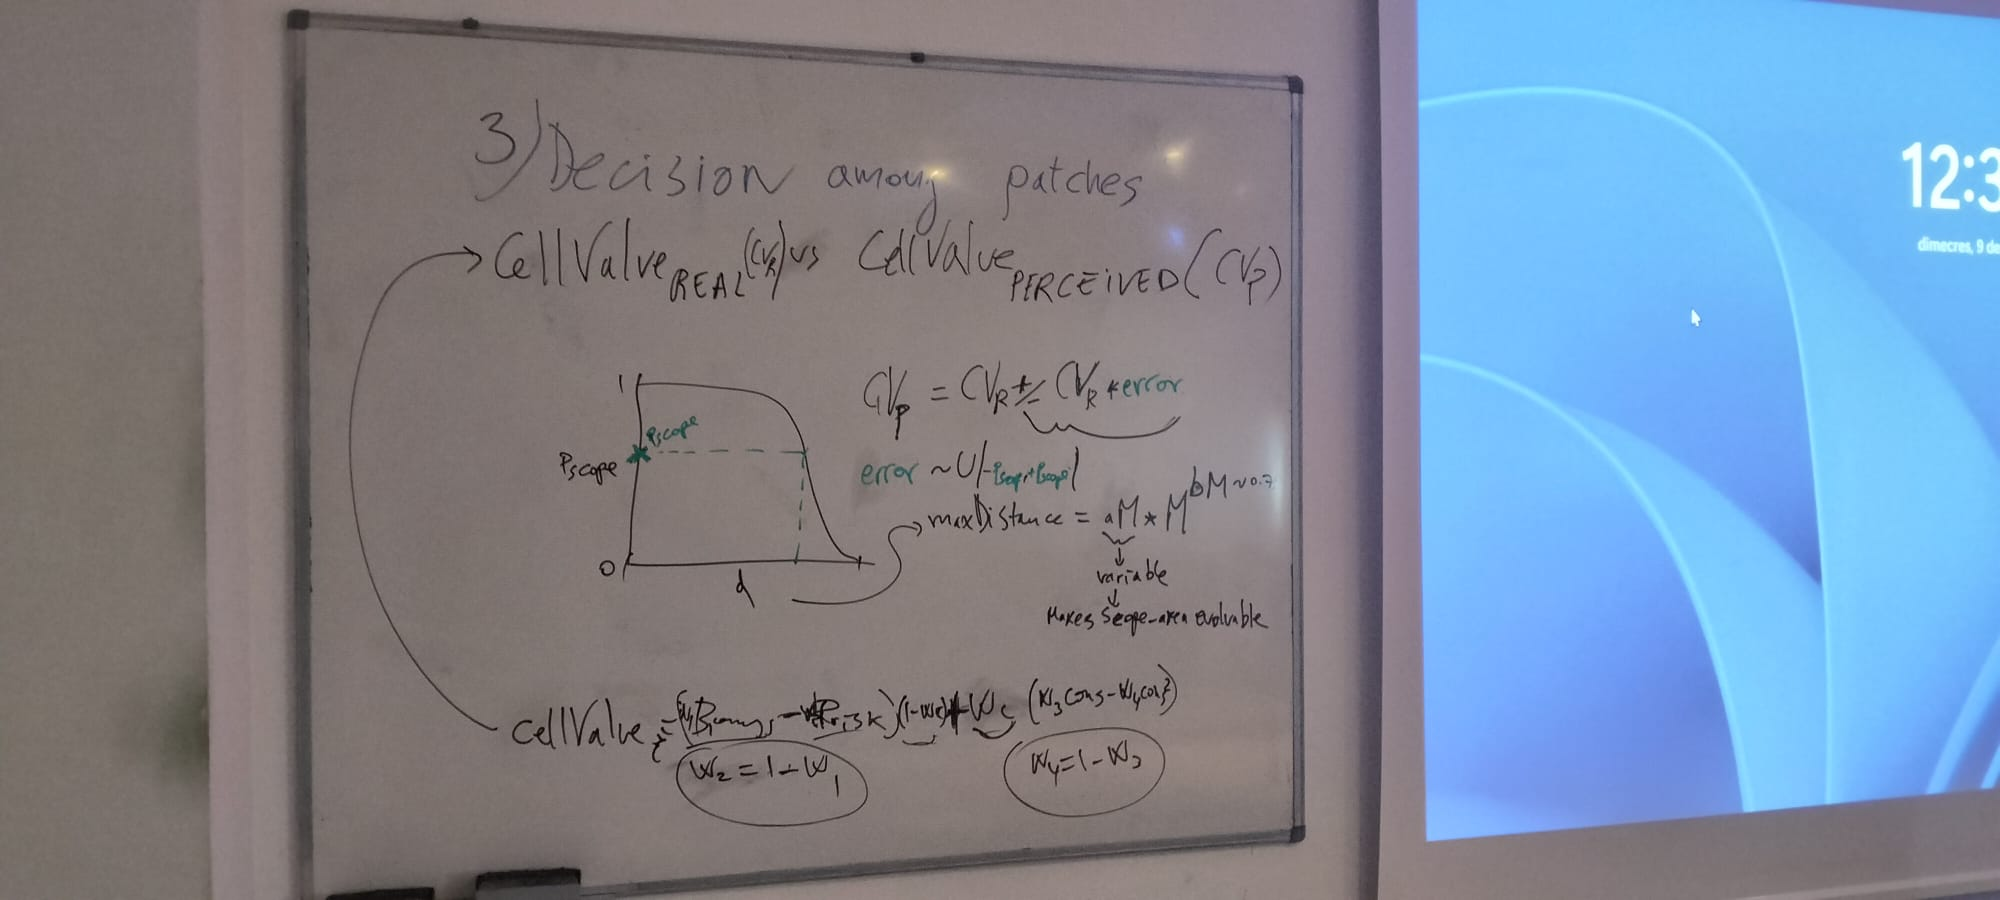 3) Decision among patches
CellValue REAL (CVR) vs CellValue PERCEIVED (CVP)
1
Pscope
Pscope
0
d
CVP = CVR +/- CVR * error
error ~ U(-Pscope, +Pscope)
maxDistance = aM * M^bM ~ 0.7
variable
Makes scope-area evolvable
cellValue = (W1 - Risk) (1-W5) + W5 (W3 cons - W4
W2 = 1 - W1
W4 = 1 - W3
12:3
dimecres, 9 de